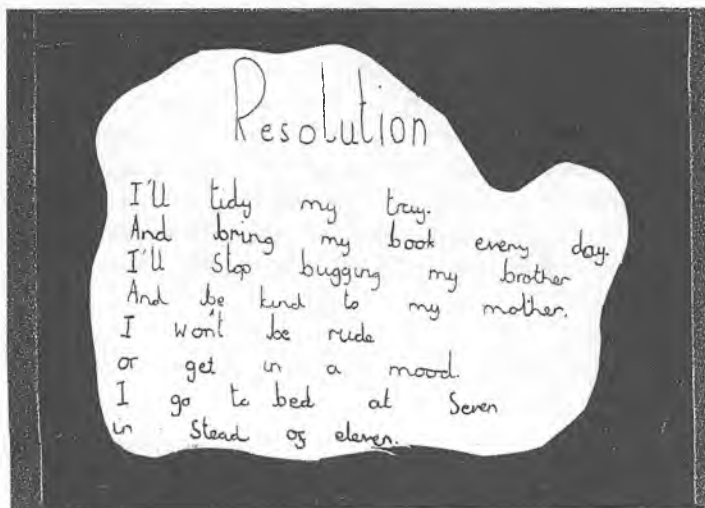 Resolution
I'll tidy my tray.
And bring my book every day.
I'll stop bugging my brother
And be kind to my mother.
I won't be rude
or get in a mood.
I go to bed at Seven
in Stead of eleven.